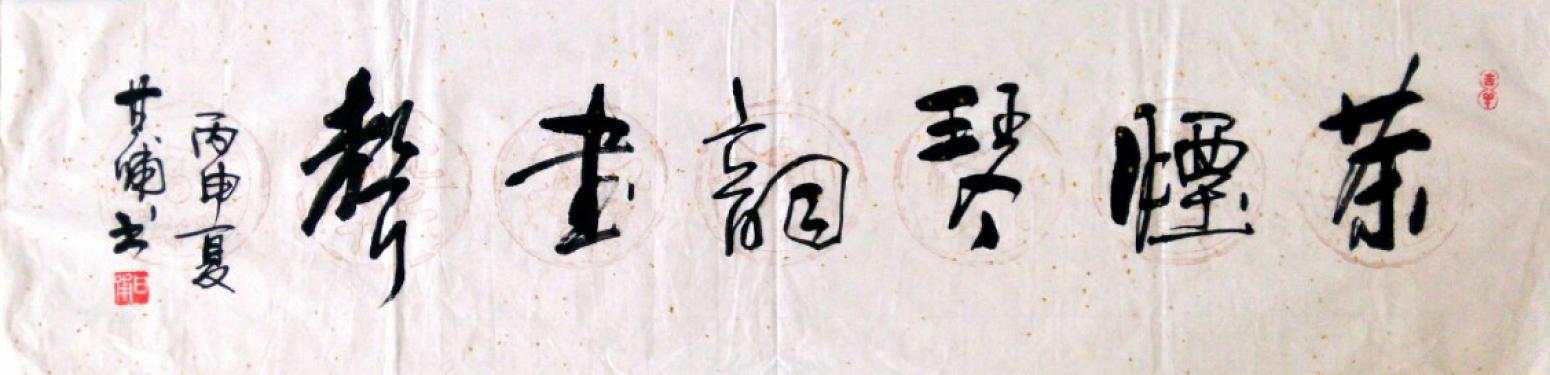 茶煙琴韻書聲
丙申夏
甘浦书